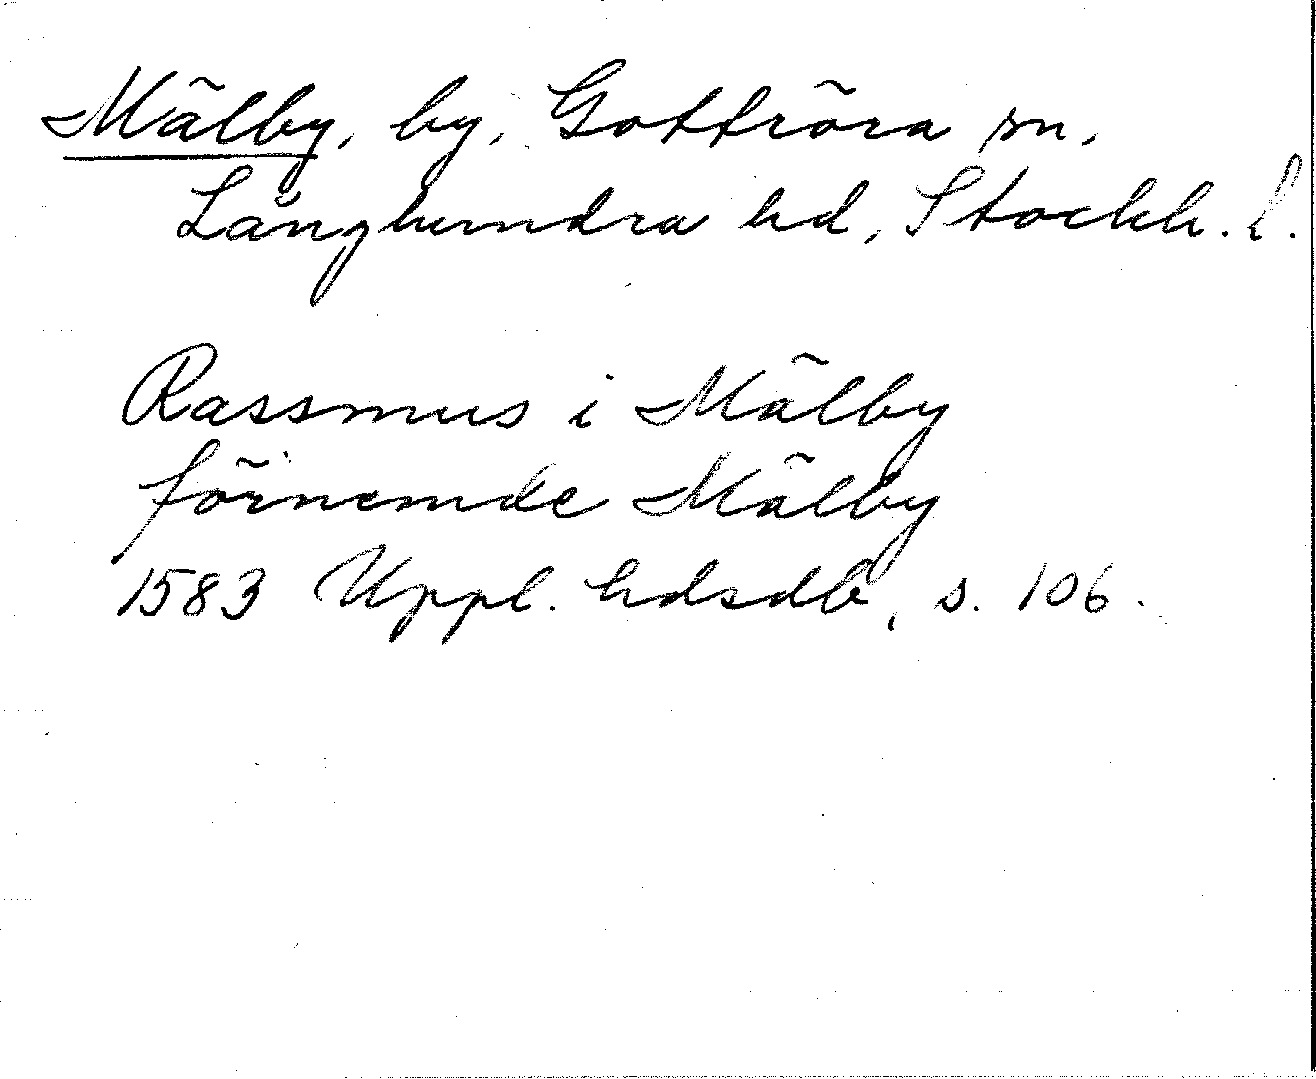 Mälby, by, Gottröra sn,
Långhundra hd, Stockh. l.
Rassmus i Mälby
förnemde Mälby
1583 Uppl. hdsdb, s. 106.